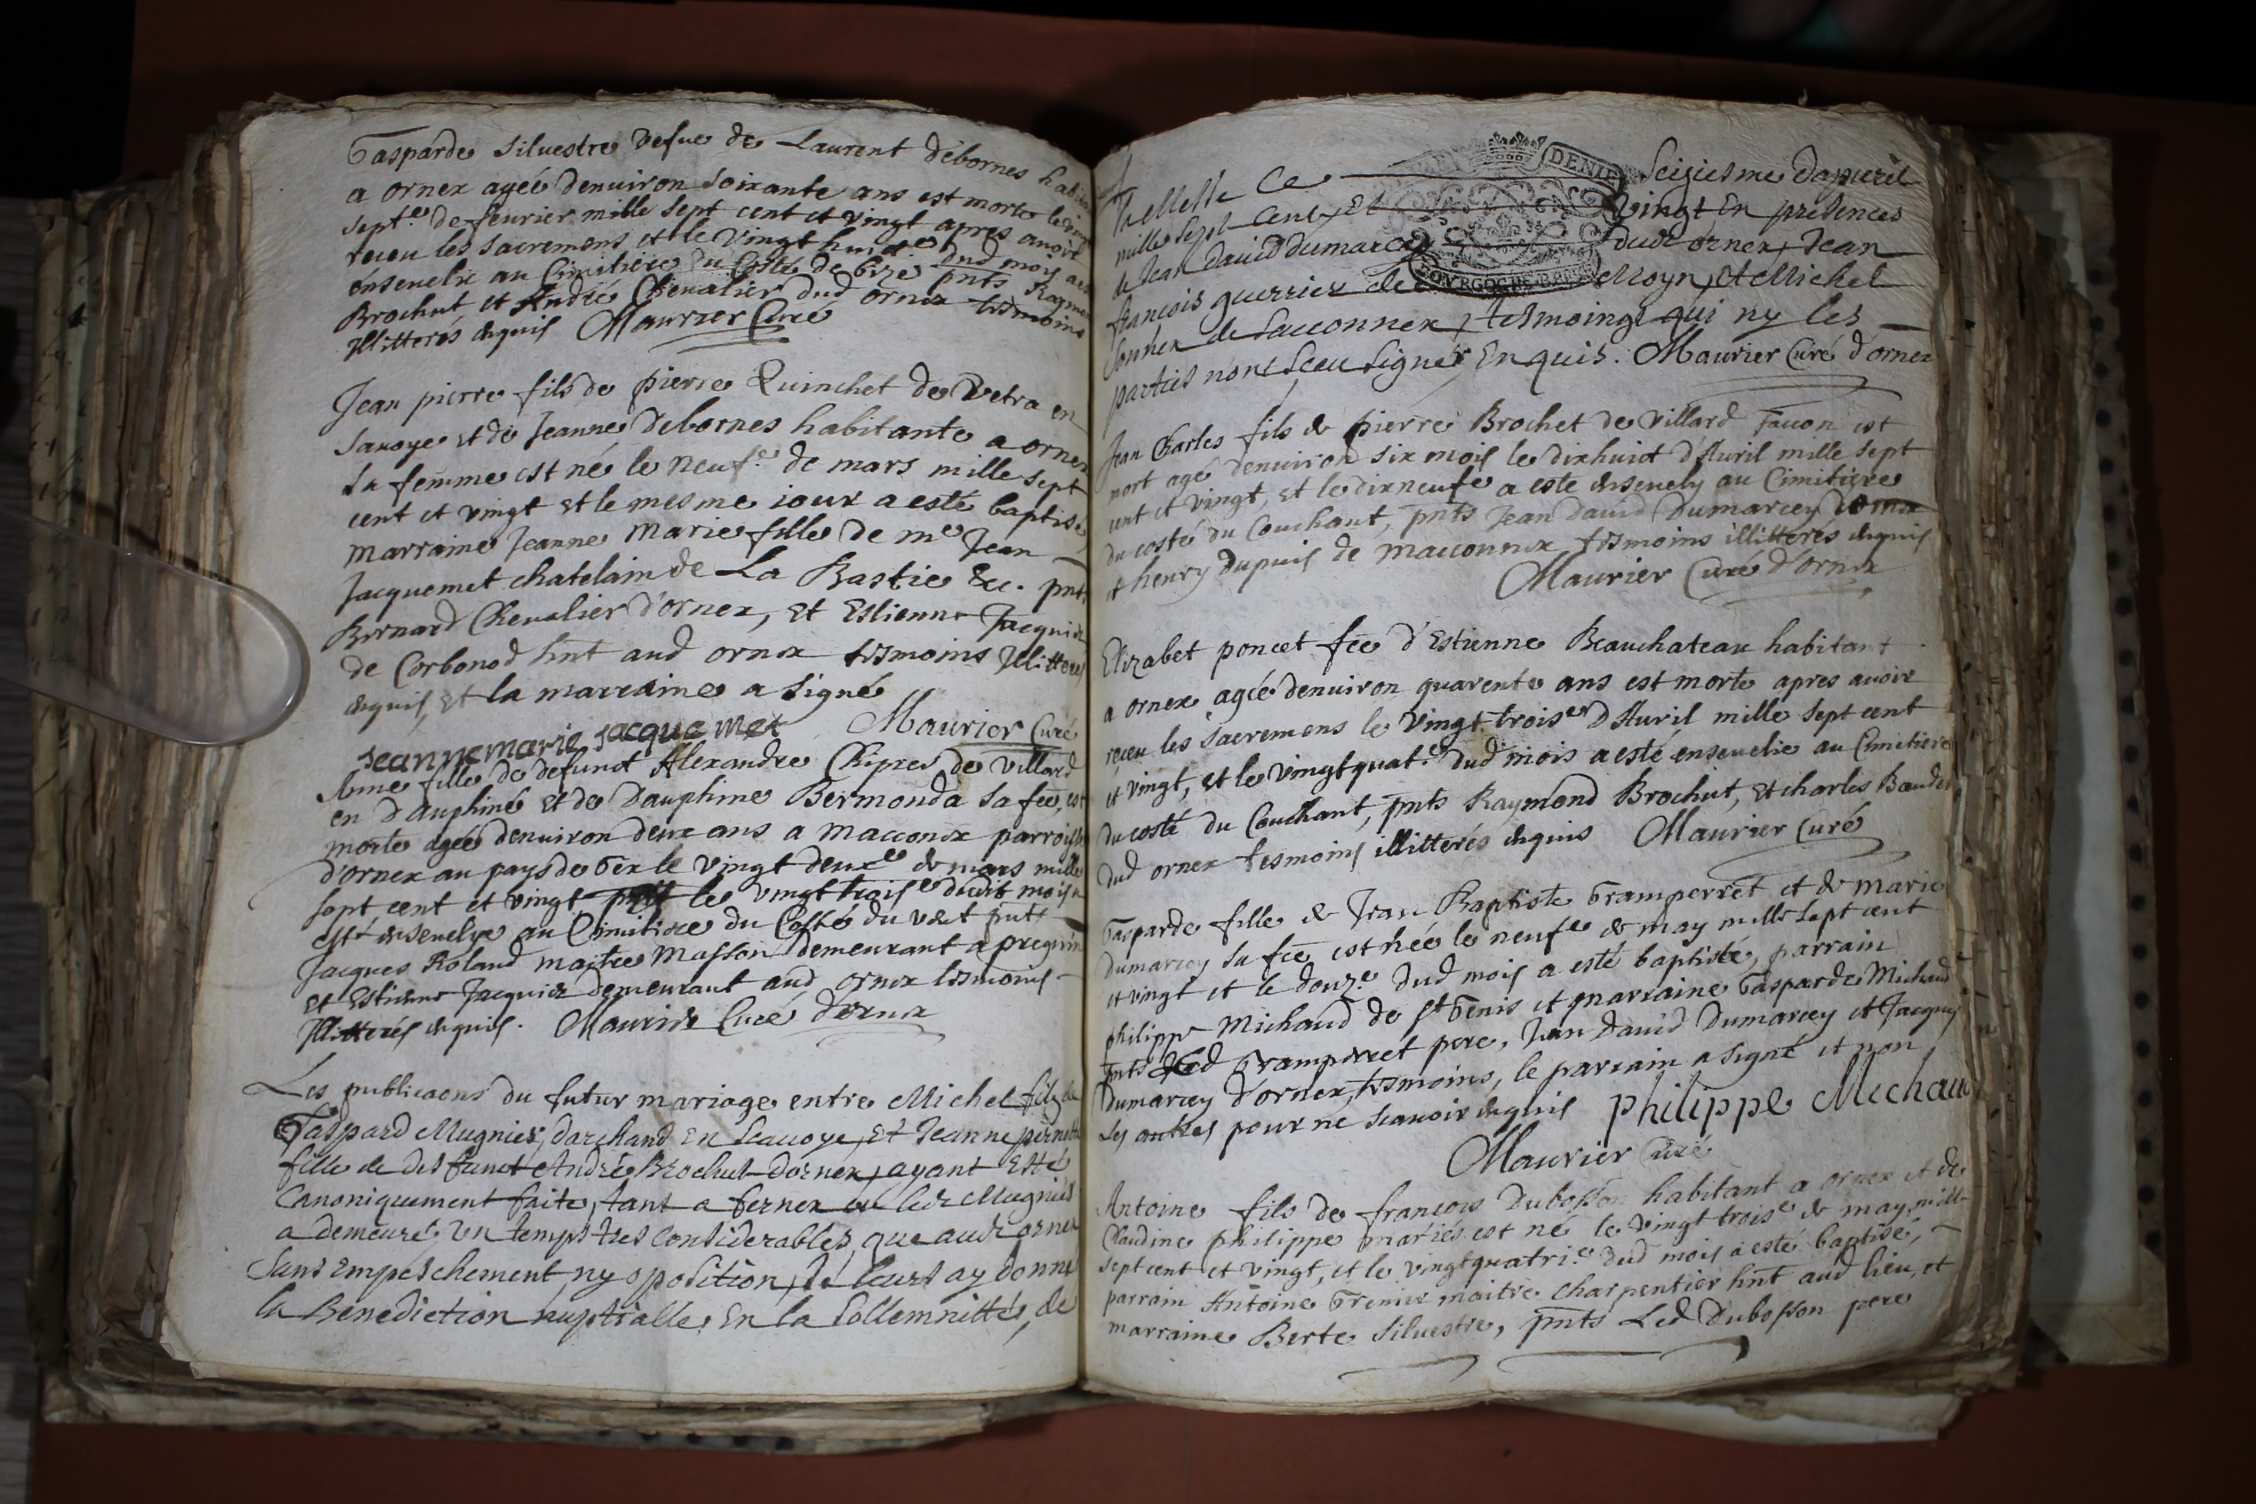 Gasparde Silvestre vefue de Laurent débornes
a ornex agéé denuiron soixante ans est morte
sept.e de feurier mille sept cent et vingt apres auoir
receu les sacremens et le vingt huit.e dud mois
énseuelie au Cimitiere du Costé de bize pnts
Brochut, et André Cheualier dud ornex tesmoins
Illitterés enquis Maurier Curé
Jean pierre fils de pierre Quinchet de Vetra en
sauoye et de Jeanne Debornes habitante a ornex
sa femme est né le neuf.e de mars mille sept
cent et vingt et le mesme iour a esté baptisé,
marraine Jeanne Marie fille de m.e Jean
Jacquemet chatelain de La Bastie &c. pnts
Bernard Cheualier d'ornex, et Estienne Jacquier
de Corbonod hnt aud ornex tesmoins Illitterés
enquis, et la marraine a signé
Jeanne marie jacquemet Maurier Curé
fille de defunct Alexandre Chipres de villard
en Dauphiné et de Dauphine Bermonda sa fée, est
morte agéé denuiron deux ans a Macconex parroisse
d'ornex au pays de Gex le vingt deux.e de mars mille
sept cent et vingt le vingt trois.e dudit mois a
esté enseuelye au Cimitiere du Costé du vent pnts
Jacques Roland maitre Masson demeurant a preguin
et Estienne Jacquier demeurant aud ornex tesmoins
Illitterés enquis. Maurier Curé d'ornex
Les publicaons du futur mariage entre Michel filz de
Gaspard Mugnier, darchand En Scauoye, Et Jeanne pernette
fille de deffunct André Brochut dornex, ayant Esté
Canoniquement faite, tant a fernex ou ledt Mugnier
a demeuré vn temps tres considerables, que audt ornex
sans empeschement ny opposition, Je leurs ay donné
la Benediction nuptialle, En la sollemnitté, de
DENIE
BOVRGOGNE BRE
Messe Ce Seiziesme dapuril
mille sept cent Et vingt En presences
de Jean dauid dumarcey dudt ornex, Jean
francois guerrier de Moyn, Et Michel
sonnex de Sacconnex, tesmoings qui ny les
parties n'ont sceu signer, Enquis. Maurier Curé d'ornex
Jean Charles fils de pierre Brochet de Villard Tacon est
mort agé denuiron six mois le dixhuict d'Auril mille sept
cent et vingt, et le dixneufe a esté enseuely au Cimitiere
du costé du Couchant, pnts Jean Dauid Dumarcey d'ornex
et henry Dupuis de macconnex tesmoins illitterés enquis
Maurier Curé d'ornex
Elizabet poncet fée d'Estienne Beauchateau habitant
a ornex agéé denuiron quarente ans est morte apres auoir
receu les sacremens le vingt trois.e D'Auril mille sept cent
et vingt, et le vingtquat.e dud mois a esté enseuelie au Cimitiere
du costé du Couchant, pnts Raymond Brochut, et charles Baudet
dud ornex tesmoins illitterés enquis Maurier Curé
Gasparde fille de Jean Baptiste Gramperret et de marie
Dumarcey sa fée est néé le neuf.e de may mille sept cent
et vingt et le douz.e dud mois a esté baptiséé, parrain
philippe Michaud de st Genis et marraine Gasparde Michaud
pnts Led Gramperret pere, Jean David Dumarcey et Jacques
Dumarcey d'ornex, tesmoins, le parrain a signé et non
Les autres pour ne scauoir enquis philippe Michaud
Maurier Curé
Antoine fils de francois Dubosson habitant a ornex et de
Claudine philippe mariés est né le vingt trois.e de may mille
sept cent et vingt, et le vingtquatri.e dud mois a esté baptisé,
parrain Antoine Grenier maitre charpentier hnt aud lieu, et
marraine Berte Siluestre, pnts Led Dubosson pere